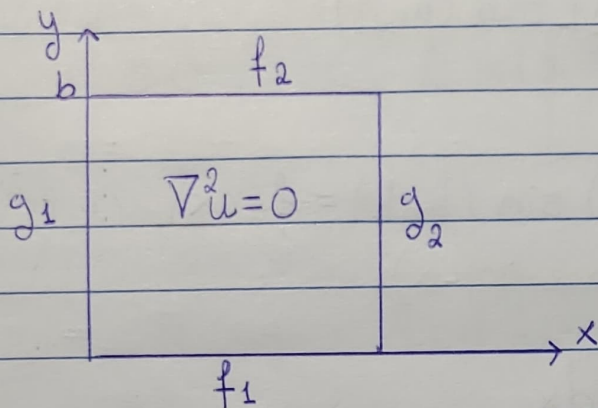 y
f₂
b
g₁ ∇²u=0 g₂
x
f₁